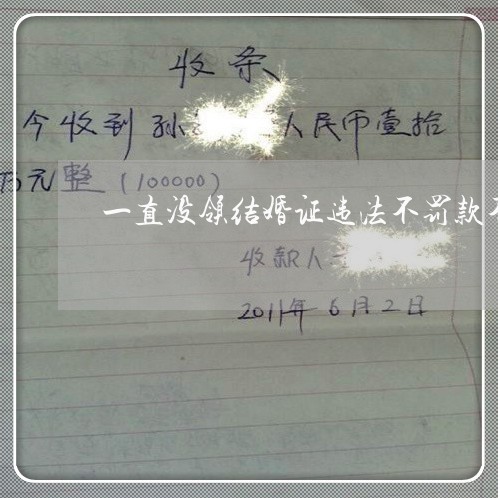 收条
今收到孙 人民币壹拾
万元整（100000）
一直没领结婚证违法不罚款
收款人
2011年6月2日